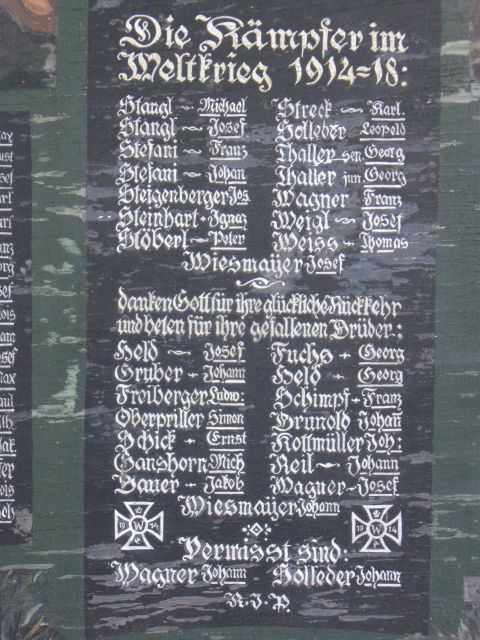 Die Kämpfer im
Weltkrieg 1914=18:
Stangl ~ Michael
Stangl ~ Josef
Stefani ~ Franz
Stefani ~ Johan
Steigenberger Jos.
Steinhart - Ignaz
Stöberl ~ Peter
Streck ~ Karl.
Holleder Leopold
Thaller sen Georg
Thaller jun Georg
Wagner Franz
Weigl ~ Josef
Weiss - Thomas
Wiesmayer Josef
danken Gott für ihre glückliche Rückkehr
und beten für ihre gefallenen Brüder.:
Held ~ Josef
Gruber - Johann
Freiberger Ludw:
Oberpriller Simon
Schick - Ernst
Ganshorn Mich
Bauer - Jakob
Fuchs - Georg
Held - Georg
Schimpf - Franz
Grunold Johan
Kottmüller Joh:
Reil ~ Johann
Wagner - Josef
Wiesmayer Johann
19 W 14
19 W 14
Vermisst sind:
Wagner Johann Holleder Johann
R.I.P.